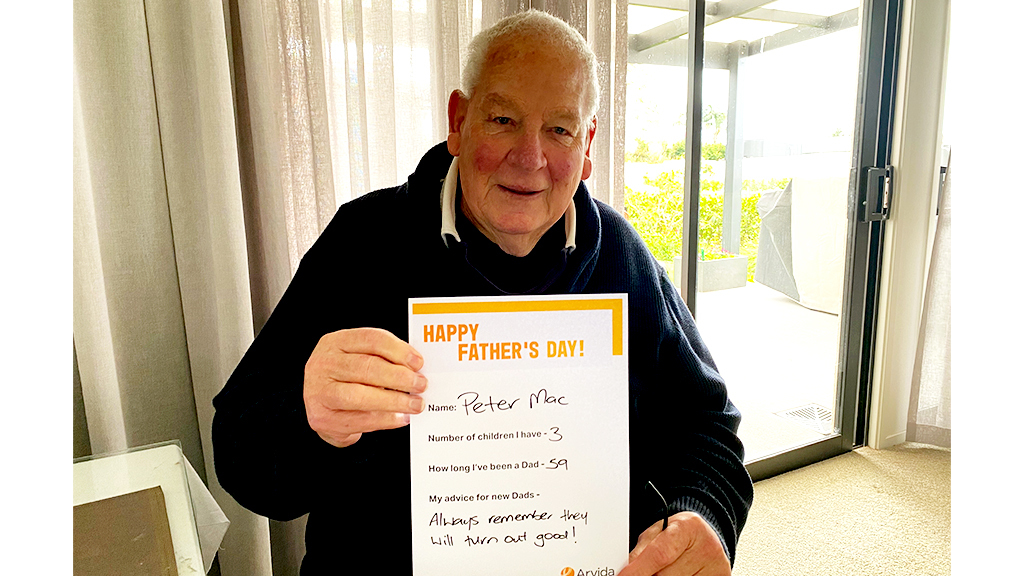 HAPPY
FATHER'S DAY!
Name: Peter Mac
Number of children I have - 3
How long I've been a Dad - 59
My advice for new Dads -
Always remember they
will turn out good!
Arvida